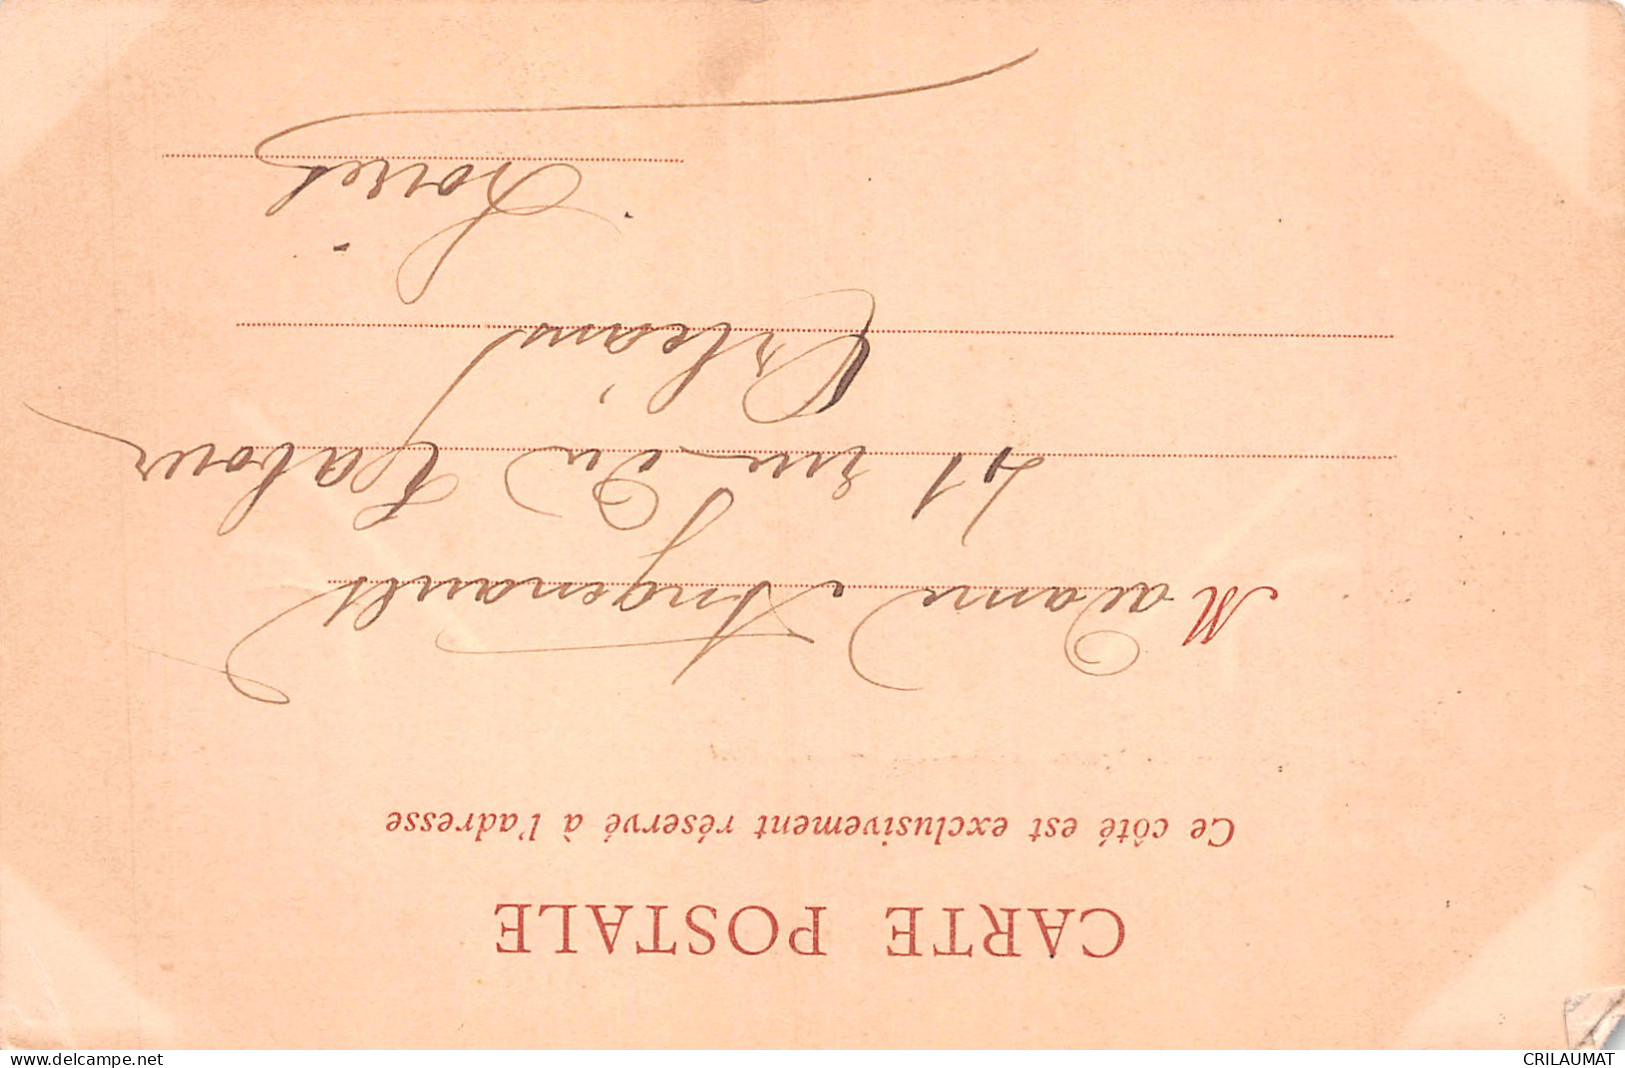 CARTE POSTALE
Ce côté est exclusivement réservé à l'adresse
Madame Angenault
41 rue du Tabour
Orléans
Loiret
delcampe.net
CRILAUMAT